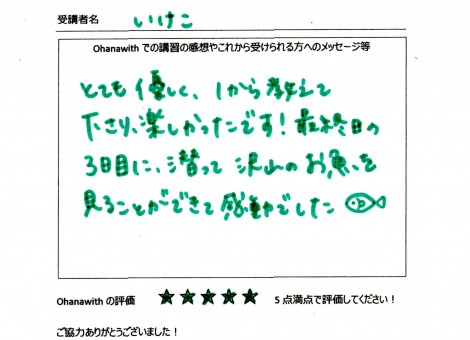 受講者名 いけこ
Ohanawith での講習の感想やこれから受けられる方へのメッセージ等
とても優しく、1から教えて
下さり、楽しかったです!最終日の
3日目に、潜って沢山のお魚を
見ることができて感動でした
Ohanawith の評価 ★★★★★ 5点満点で評価してください!
ご協力ありがとうございました!